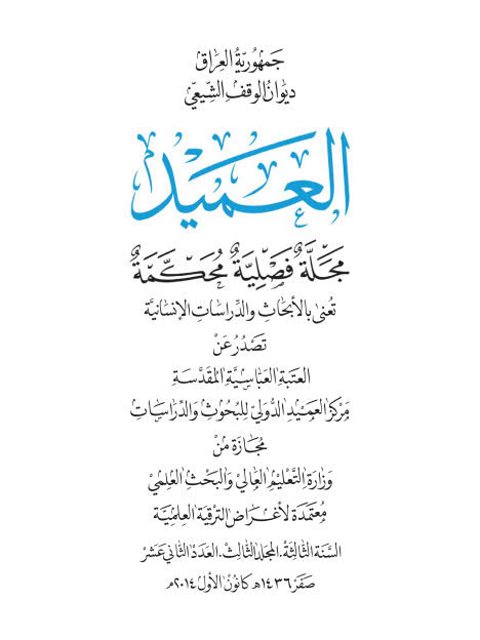 جمهورية العراق
ديوان الوقف الشيعي
العميد
مجلة فصلية محكمة
تعنى بالأبحاث والدراسات الإنسانية
تصدر عن
العتبة العباسية المقدسة
مركز العميد الدولي للبحوث والدراسات
مجازة من
وزارة التعليم العالي والبحث العلمي
معتمدة لأغراض الترقية العلمية
السنة الثالثة . المجلد الثالث . العدد الثاني عشر
صفر ١٤٣٦هـ كانون الأول ٢٠١٤م